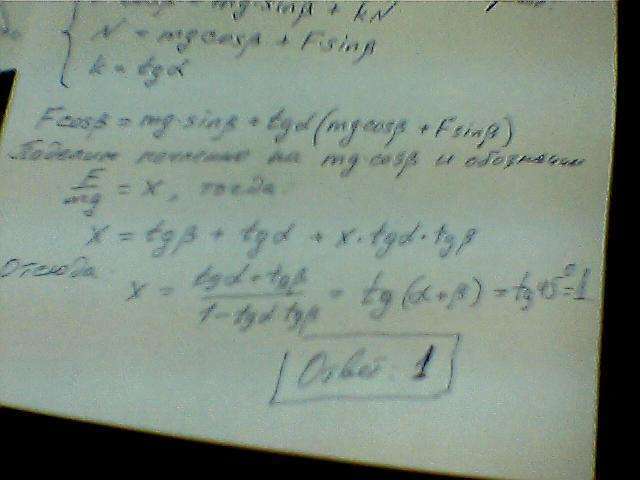 F cosβ = mg·sinβ + kN
N = mgcosβ + Fsinβ
k = tgα
Fcosβ = mg·sinβ + tgα(mgcosβ + Fsinβ)
Поделим почленно на mg·cosβ и обозначим
F/mg = x, тогда
x = tgβ + tgα + x·tgα·tgβ
Отсюда
x = (tgα + tgβ)/(1 - tgα tgβ) = tg(α+β) = tg45° = 1
Ответ 1